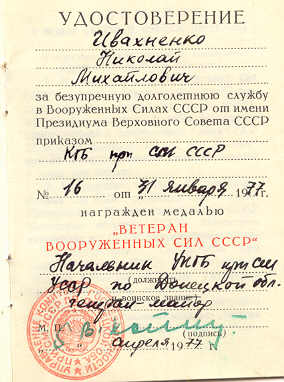 УДОСТОВЕРЕНИЕ
Ивахненко
Николай
Михайлович
за безупречную долголетнюю службу
в Вооруженных Силах СССР от имени
Президиума Верховного Совета СССР
приказом
КГБ при СМ СССР
№ 16 от 31 января 1977г.
награжден медалью
"ВЕТЕРАН
ВООРУЖЕННЫХ СИЛ СССР"
Начальник УКГБ при СМ
(должность
УССР по Донецкой обл.
и воинское звание)
генерал-майор
М. П.
(подпись)
апреля 1977 г.